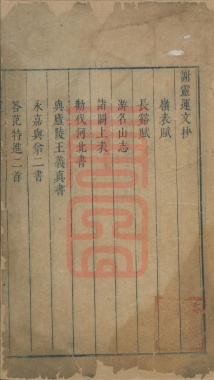 謝靈運文抄
嶺表賦
長谿賦
游名山志
詣闕上表
勸伐河北書
與廬陵王義真書
永嘉與弟二書
答范特進二首